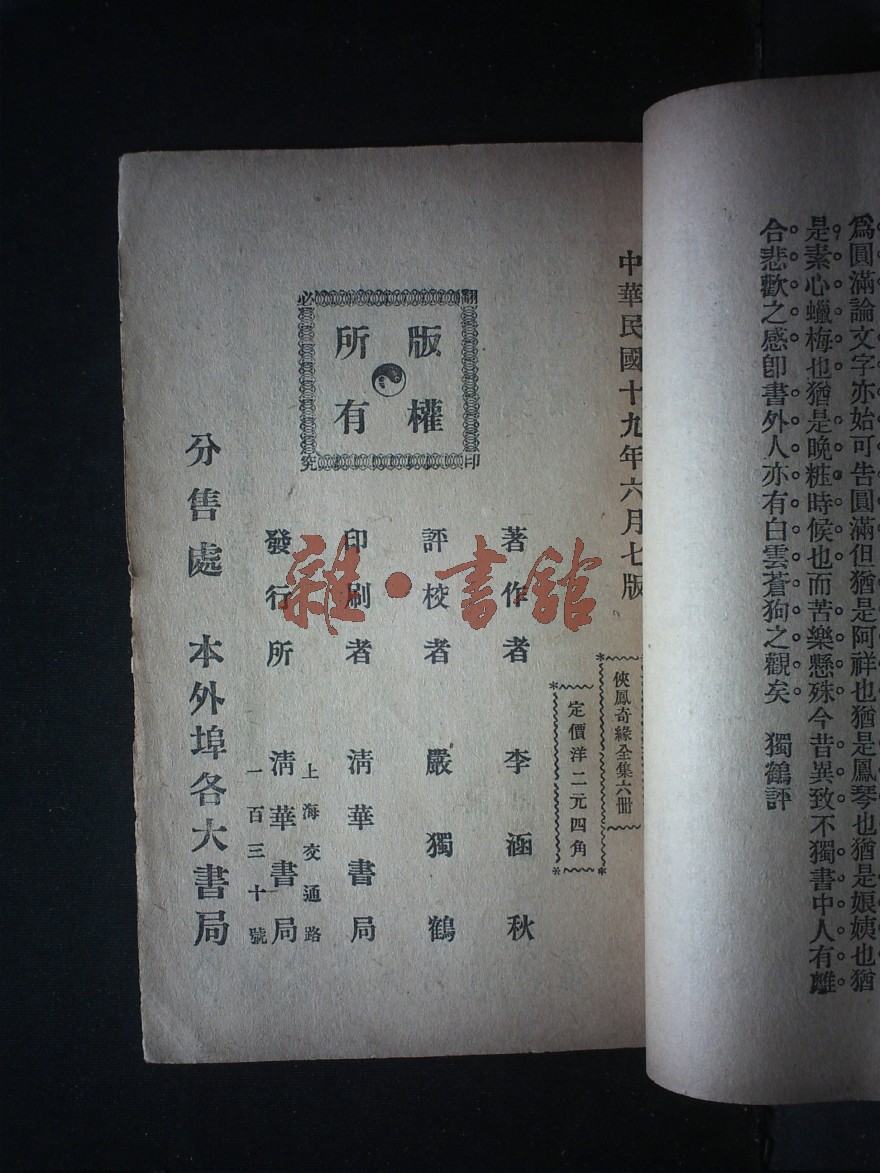 爲圓滿論文字亦始可告圓滿但猶是阿祥也猶是鳳琴也猶是娘姨也猶
是素心蠟梅也猶是晚粧時候也而苦樂懸殊今昔異致不獨書中人有離
合悲歡之感卽書外人亦有白雲蒼狗之觀矣 獨鶴評
中華民國十九年六月七版
俠鳳奇緣全集六冊
定價洋二元四角
著作者 李涵秋
評校者 嚴獨鶴
印刷者 淸華書局
上海交通路
發行所 淸華書局
一百三十號
分售處 本外埠各大書局
版權
所有
翻印
必究
雜·書館